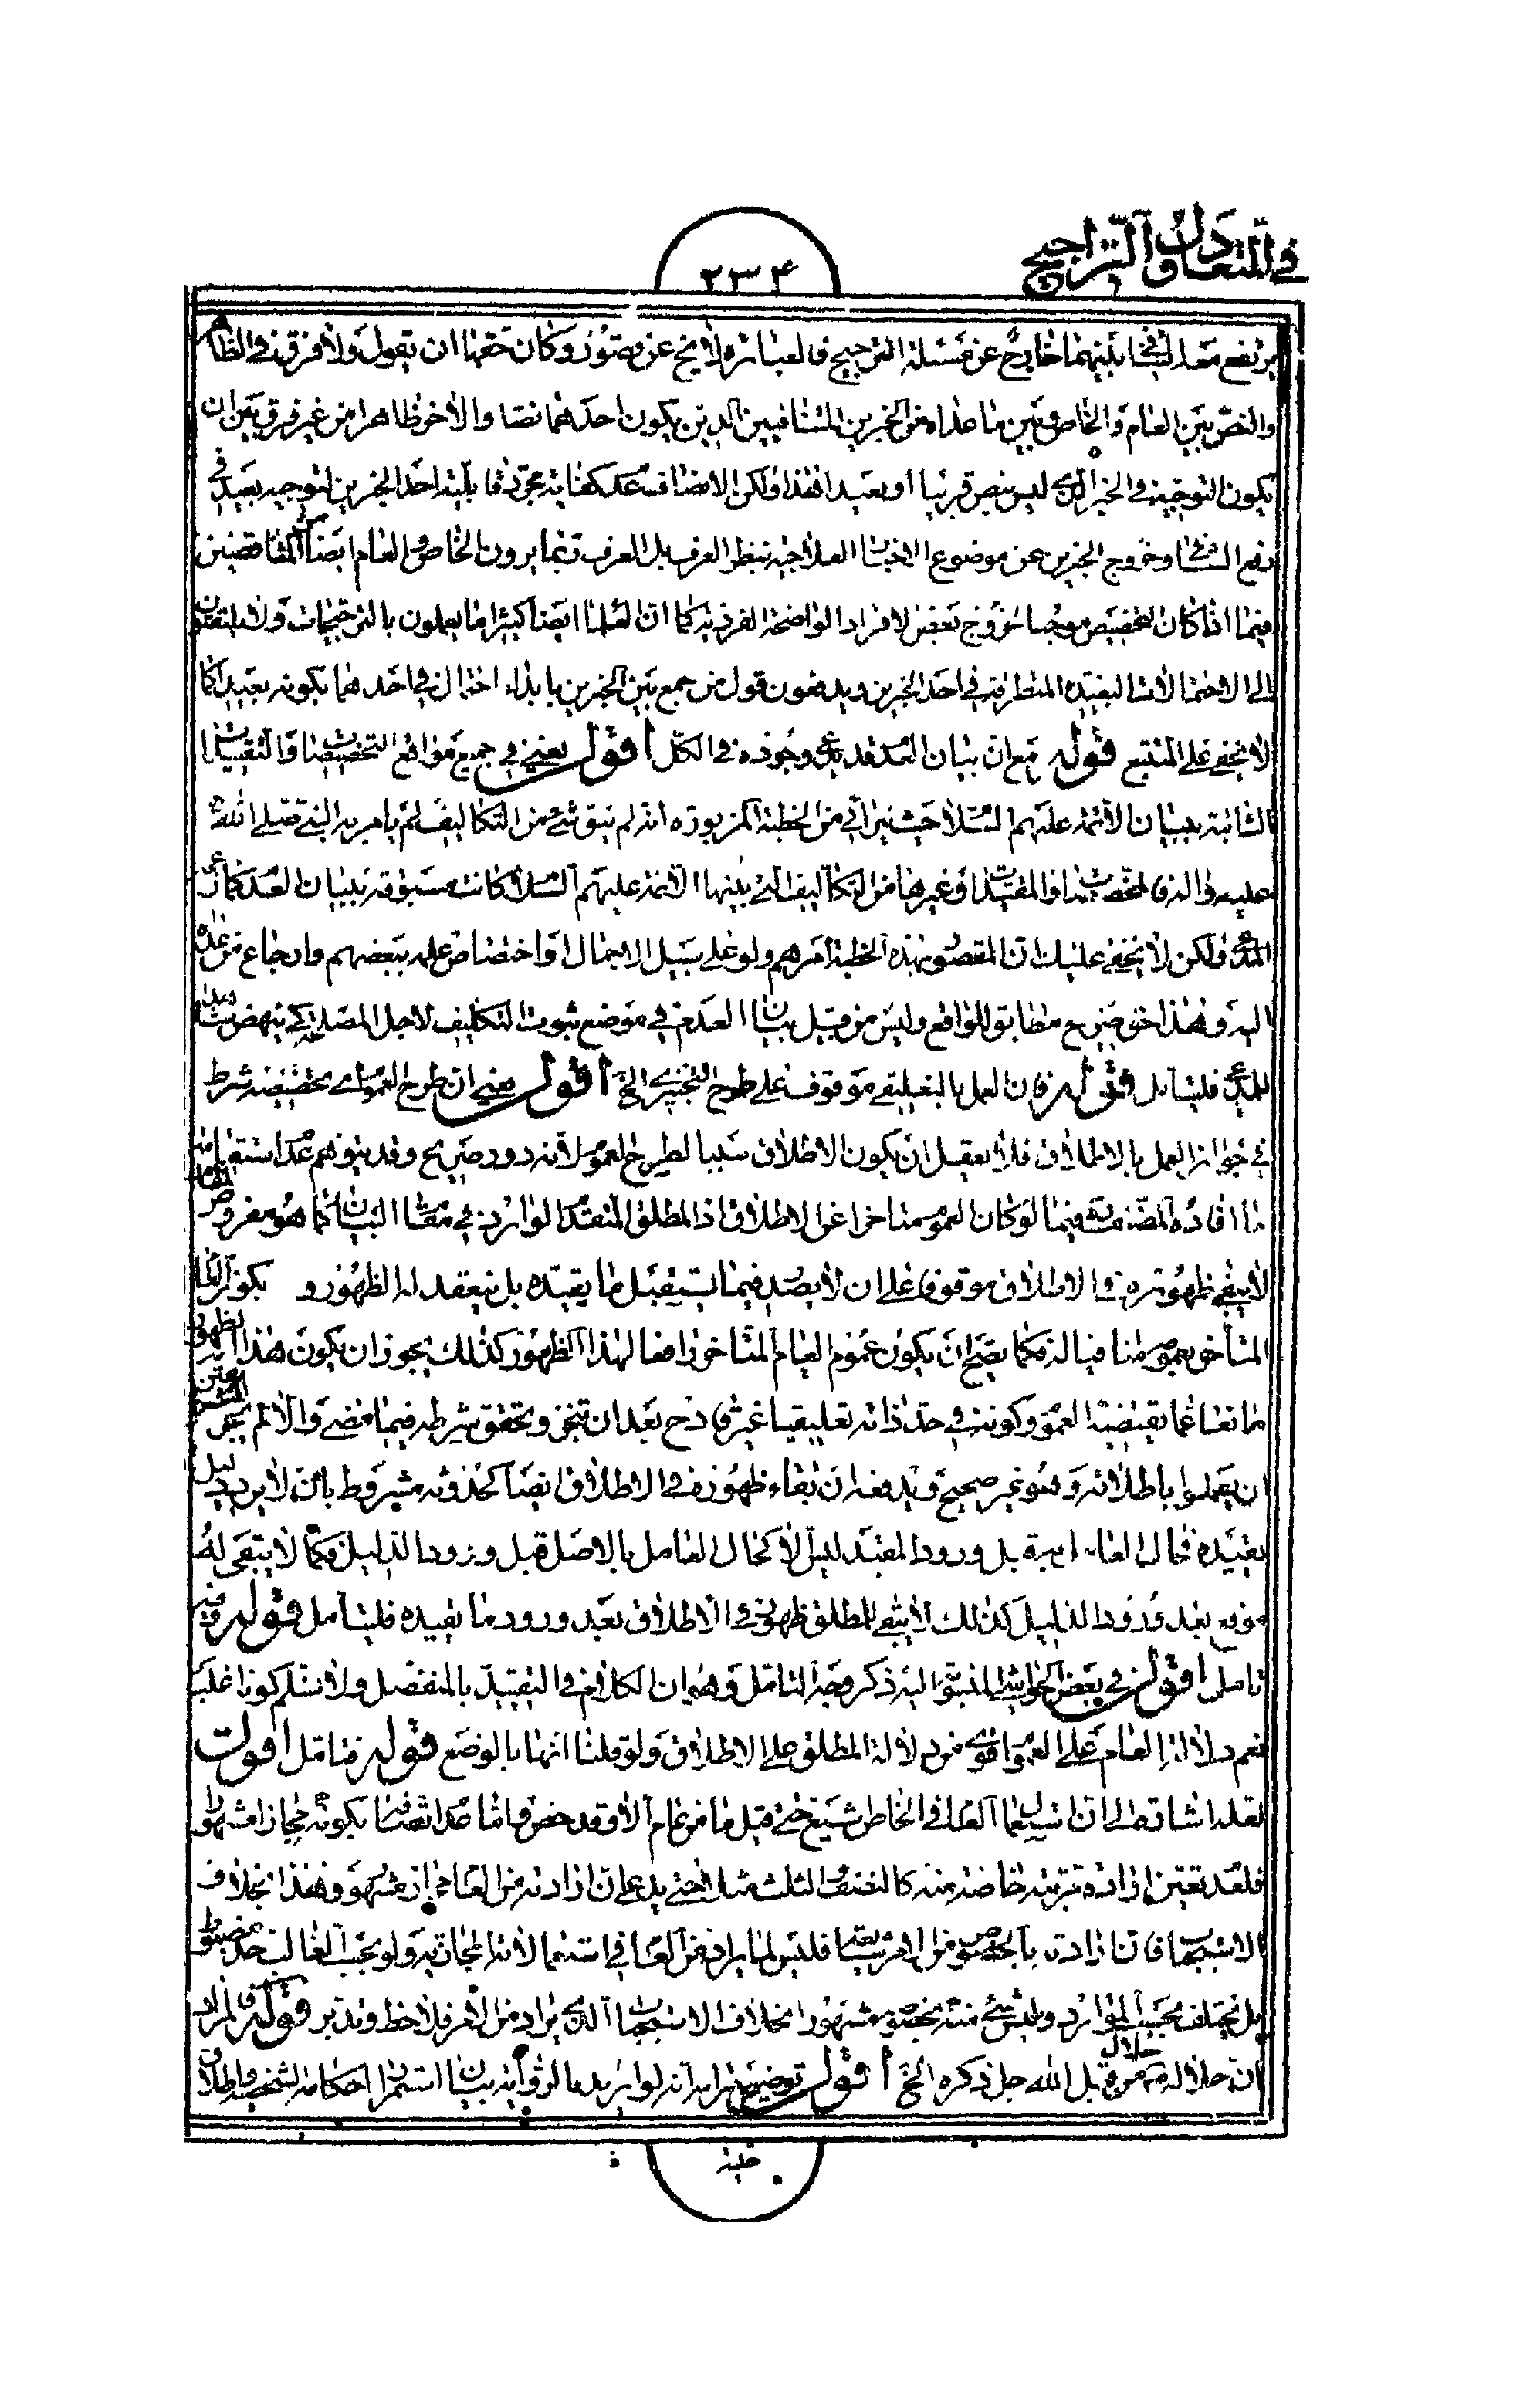 في التعادل والتراجيح
۲۳۴
يرتفع معه التنافي بينهما خارج عن مسئلة الترجيح فالعبارة لا يخ عن قصور وكان حقها ان تقول ولا فرق في الظاهر
والنص بين العام والخاص وبين ما عداه من الخبرين المتنافيين الذين يكون احدهما نصا والاخر ظاهرا من غير فرق بين ان
يكون التوجيه في الخبر الذي ليس بنص قريبا او بعيدا فهذا ولكن الانصاف عدم كفاية مجرد قابلية احد الخبرين لتوجيه بعيد في
رفع التنافي وخروج الخبرين عن موضوع الاخبار العلاجية بنظر العرف بل العرف ربما يرون الخاص والعام ايضا من المتناقضين
فيما اذا كان التخصيص موجبا لخروج بعض الافراد الواضحة الفردية كما ان العلماء ايضا كثيرا ما يعملون بالترجيحات ولا يلتفتون
الى الاحتمالات البعيدة المتطرقة في احد الخبرين ويدفعون قول من جمع بين الخبرين بابداء احتمال في احدهما بكونه بعيدا كما
لا يخفى على المتتبع قوله مع ان بيان العدم قد يدعى وجوده في الكل اقول يعني في جميع مواقع التخصيصات والتقييدات
الثابتة ببيان الائمة عليهم السلام حيث يتراءى من الخطبة المزبورة انه لم يبق شيء من التكاليف لم يامر به النبي صلى الله
عليه واله فالمخصصات والمقيدات وغيرها من التكاليف التي بينها الائمة عليهم السلام كانت مسبوقة ببيان العدم كما زعمه
المدعي ولكن لا يخفى عليك ان المقصود بهذه الخطبة امرهم ولو على سبيل الاجمال او اختصاص علمه ببعضهم وارجاع من عداه
اليه وهذا حق صريح مطابق للواقع وليس من قبيل بيان العدم في موضع ثبوت التكليف لاجل المصلحة كي ينهض دليلا
للمدعي فليتامل قوله فان العمل بالتعليقي موقوف على طرح التنجيزي الخ اقول يعني ان طرح العموم اي تخصيصه شرط
في جواز العمل بالاطلاق فلا يعقل ان يكون الاطلاق سببا لطرح العموم لانه دور صريح وقد يتوهم عدم استقامة
ما افاده المصنف فيما لو كان العموم متاخرا عن الاطلاق اذ المطلق المتقدم الوارد في مقام البيان كما هو مفروض المقام
لا يبقى ظهوره في الاطلاق موقوفا على ان لا يصدر فيما يستقبل ما يقيده بل ينعقد له الظهور و يكون العام
المتأخر بعمومه منافيا له فكما يصح ان يكون عموم العام المتاخر رافعا لهذا الظهور كذلك يجوز ان يكون هذا الظهور
مانعا عما يقتضيه العموم وكونه في حد ذاته تعليقيا غير قادح بعد ان تنجز وتحقق شرطه فيما مضى والا لم يجز للمتقدمين
ان يعملوا باطلاقه وهو غير صحيح ويدفعه ان بقاء ظهوره في الاطلاق ايضا كحدوثه مشروط بان لا يرد دليل
يقيده فحال العامل به قبل ورود المقيد ليس الا كحال العامل بالاصل قبل ورود الدليل فكما لا يبقى له
موقع بعد ورود الدليل كذلك لا يبقى للمطلق ظهور في الاطلاق بعد ورود ما يقيده فليتامل قوله وفيه
تامل اقول في بعض الحواشي المنسوبة اليه ذكر وجه التامل وهو ان الكلام في التقييد بالمنفصل ولا نسلم كونه اغلب
نعم دلالة العام على العموم اقوى من دلالة المطلق على الاطلاق ولو قلنا انها بالوضع قوله فتامل اقول
لعله اشارة الى ان استعمال العام في الخاص شيع حتى قيل ما من عام الا وقد خص واما عدم اتصافه بكونه مجازا مشهورا
فلعدم تعين ارادة مرتبة خاصة منه كالنصف والثلث مثلا حتى يدعى ان ارادته من العام مجاز مشهور وهذا بخلاف
الاستحباب فان ارادته بالخصوص من الامر شايعة فليس لما يراد من العام في استعمالاته المجازية ولو بحسب الغالب حد مضبوط
بل يختلف بحسب الموارد وليس شيء منه بخصوصه مشهورا بخلاف الاستحباب الذي يراد من الامر فلاحظ وتدبر قوله لان المراد
ان حلاله ص حلال من قبل الله جل ذكره الخ اقول توضيح مرامه انه لو اريد بالرواية بيان استمرار احكامه الشخصية واطلاق
عليه